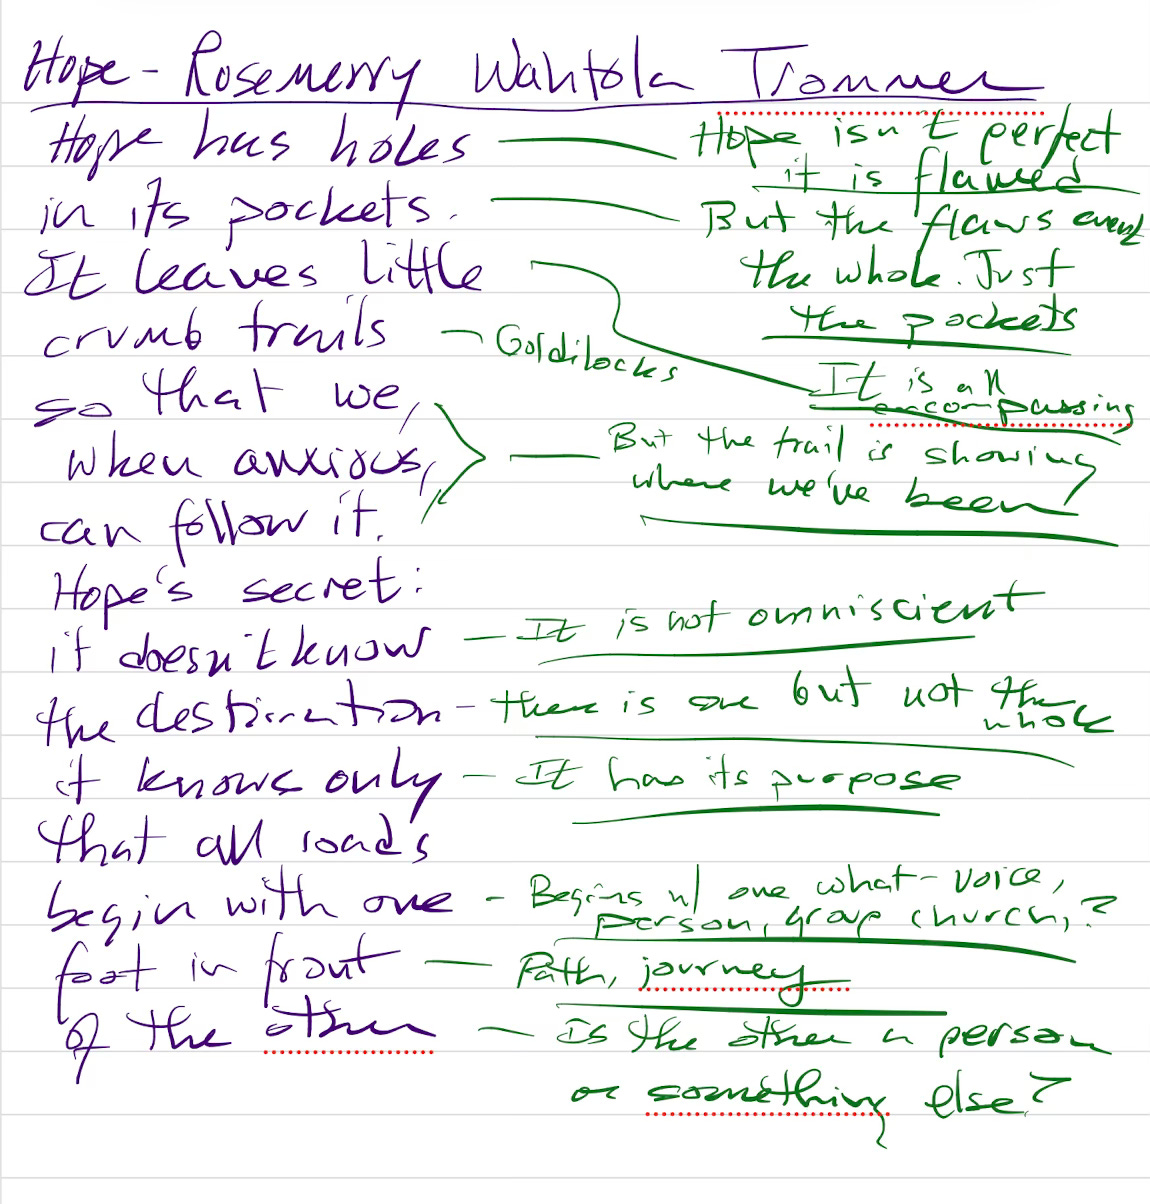 Hope - Rosemerry Wahtola Trommer
Hope has holes
Hope isn't perfect
it is flawed
in its pockets.
But the flaws aren't
the whole. Just
the pockets
It leaves little
It is all
encompassing
crumb trails
- Goldilocks
so that we,
when anxious,
can follow it.
But the trail is showing
where we've been
Hope's secret:
it doesn't know
- It is not omniscient
the destination
- there is one but not the
whole
it knows only
- It has its purpose
that all roads
begin with one
- Begins w/ one what - voice,
person, group church, ?
foot in front
- Path, journey
of the other
- Is the other a person
or something else?